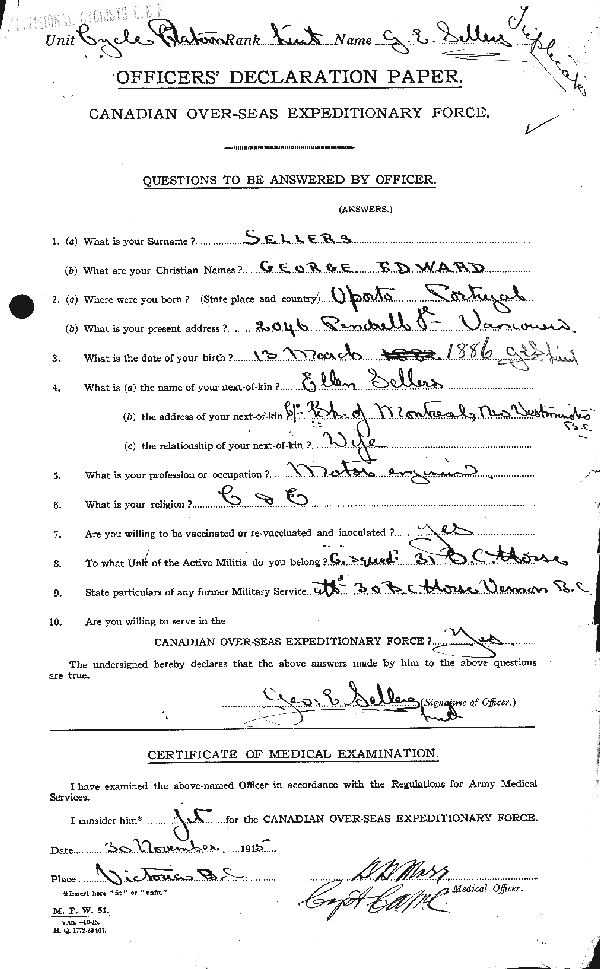 Unit Cycle Platoon Rank Lieut Name G. E. Sellers Triplicate
OFFICERS' DECLARATION PAPER.
CANADIAN OVER-SEAS EXPEDITIONARY FORCE.
QUESTIONS TO BE ANSWERED BY OFFICER.
(ANSWERS.)
1. (a) What is your Surname ? SELLERS
(b) What are your Christian Names ? GEORGE EDWARD
2. (a) Where were you born ? (State place and country) Oporto Portugal
(b) What is your present address ? 2046 Pendrell St Vancouver.
3. What is the date of your birth ? 13 March 1886 GES Lieut
4. What is (a) the name of your next-of-kin ? Ellen Sellers
(b) the address of your next-of-kin c/o Bk. of Montreal, New Westminster
B.C
(c) the relationship of your next-of-kin ? Wife
5. What is your profession or occupation ? Motor engineer
6. What is your religion ? C of E
7. Are you willing to be vaccinated or re-vaccinated and inoculated ? Yes
8. To what Unit of the Active Militia do you belong ? C. Squad. 31 B.C. Horse
9. State particulars of any former Military Service. 30 B C Horse Vernon B.C.
10. Are you willing to serve in the
CANADIAN OVER-SEAS EXPEDITIONARY FORCE ? Yes
The undersigned hereby declares that the above answers made by him to the above questions
are true.
Geo. E Sellers (Signature of Officer.)
Lieut
CERTIFICATE OF MEDICAL EXAMINATION.
I have examined the above-named Officer in accordance with the Regulations for Army Medical
Services.
I consider him* fit for the CANADIAN OVER-SEAS EXPEDITIONARY FORCE.
Date 30 November 1915
Place Victoria B.C
Medical Officer.
*Insert here "fit" or "unfit."
Capt CAMC
M. F. W. 51.